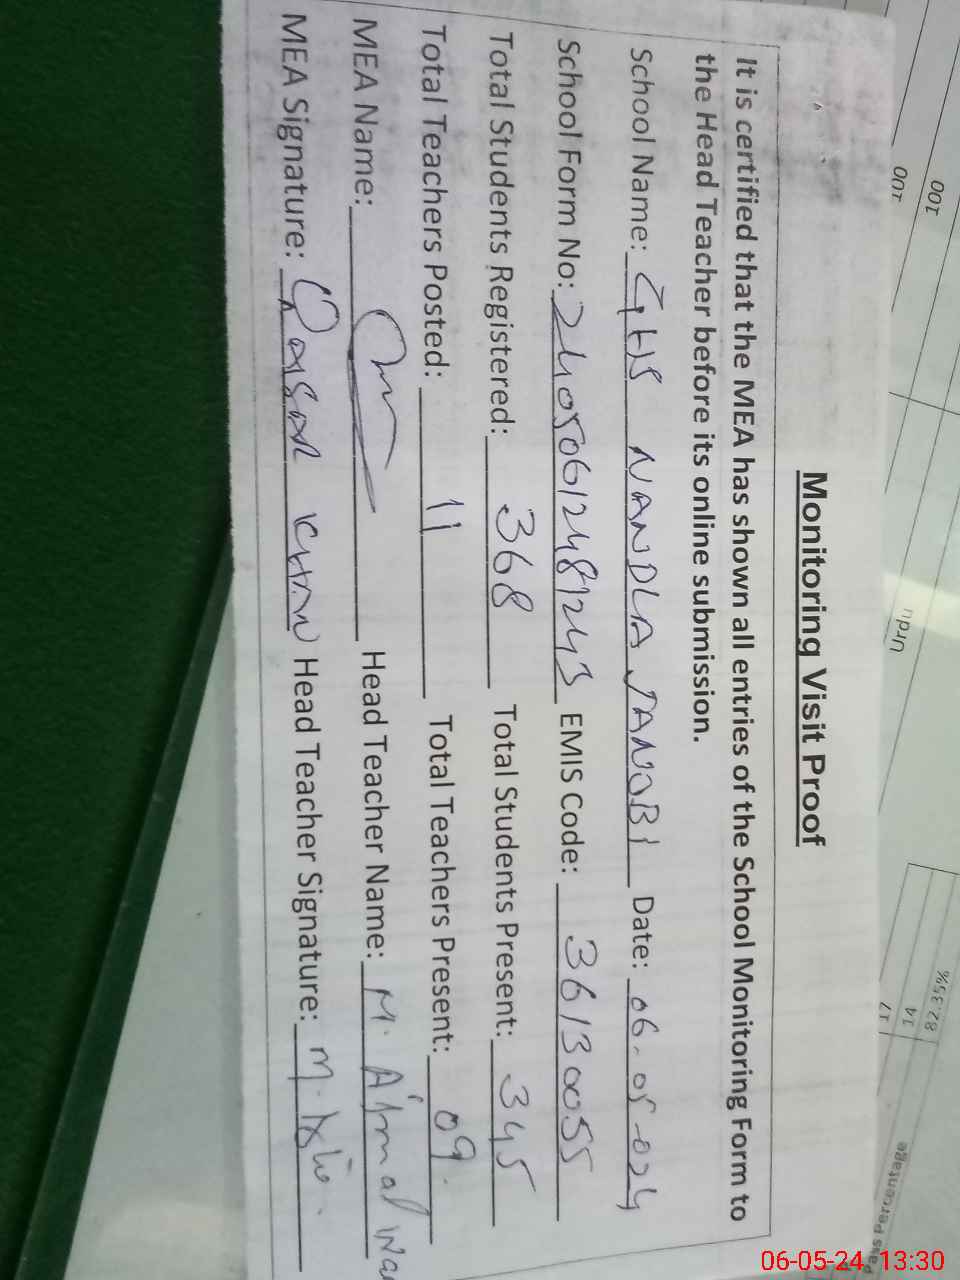 Monitoring Visit Proof
It is certified that the MEA has shown all entries of the School Monitoring Form to
the Head Teacher before its online submission.
School Name: GHS NANDLA JANOBI Date: 06-05-024
School Form No: 24050612481243 EMIS Code: 36130055
Total Students Registered: 368 Total Students Present: 345
Total Teachers Posted: 11 Total Teachers Present: 09.
MEA Name: Head Teacher Name: M. Ajmal
MEA Signature: Head Teacher Signature:
100
100
Urdu
82.35%
14
17
Pass percentage
06-05-24 13:30